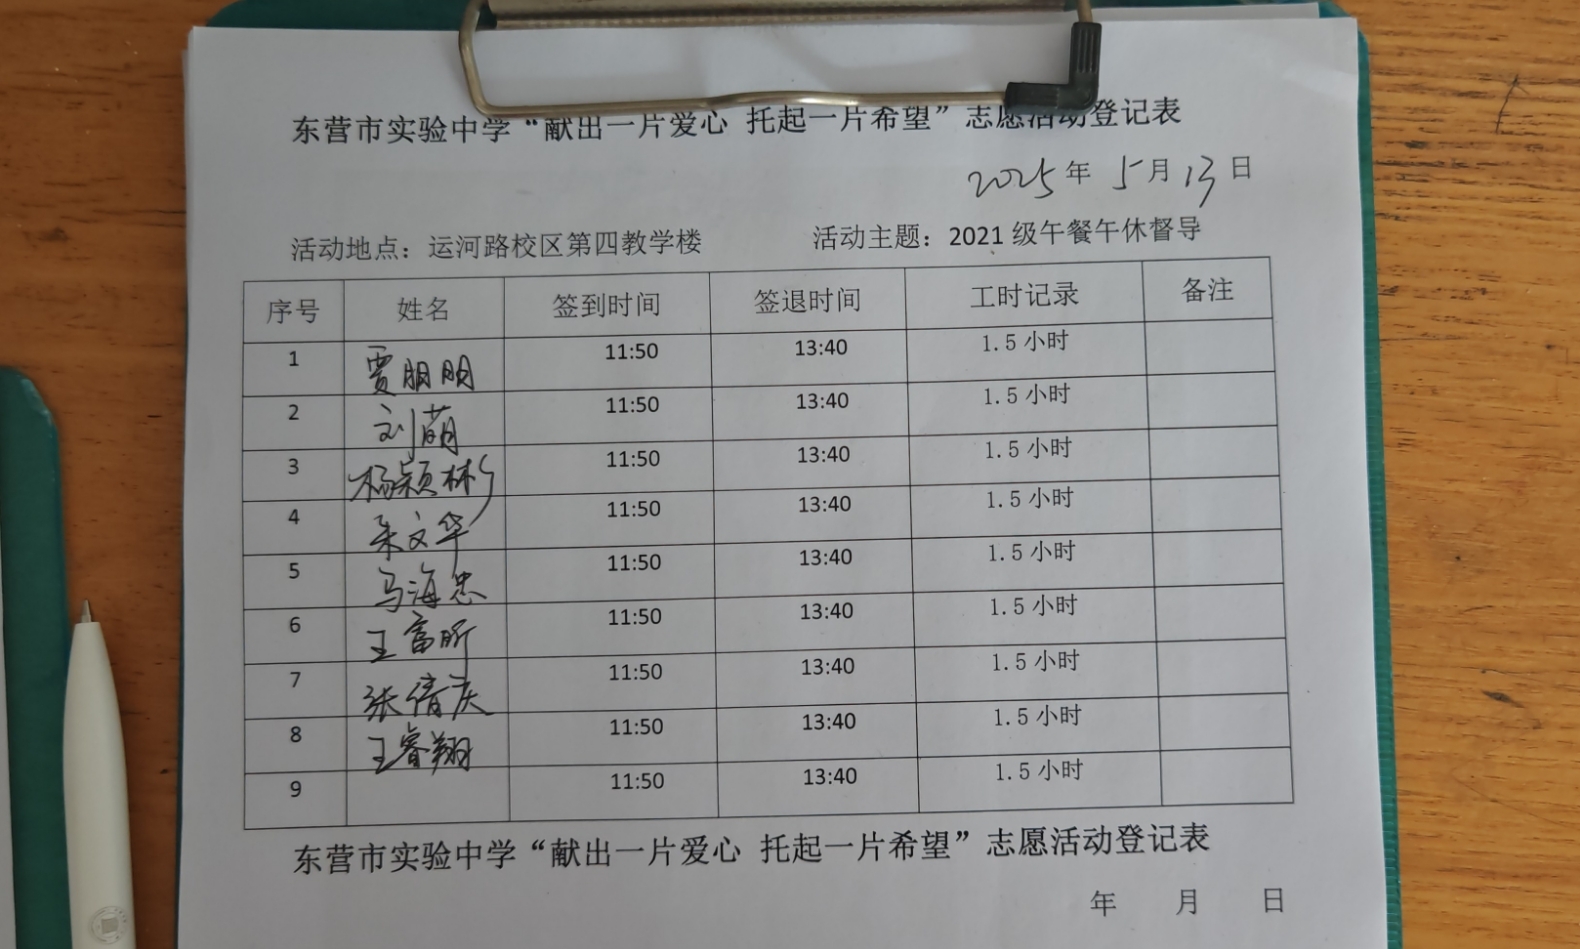 东营市实验中学“献出一片爱心 托起一片希望”志愿活动登记表
2025年 5月13日
活动地点：运河路校区第四教学楼 活动主题：2021 级午餐午休督导
序号 姓名 签到时间 签退时间 工时记录 备注
1 贾朋朋 11:50 13:40 1.5 小时
2 刘萌 11:50 13:40 1.5 小时
3 杨颖彬 11:50 13:40 1.5 小时
4 朱文华 11:50 13:40 1.5 小时
5 马海忠 11:50 13:40 1.5 小时
6 王富昕 11:50 13:40 1.5 小时
7 张倩庆 11:50 13:40 1.5 小时
8 王睿翔 11:50 13:40 1.5 小时
9 11:50 13:40 1.5 小时
东营市实验中学“献出一片爱心 托起一片希望”志愿活动登记表
年 月 日